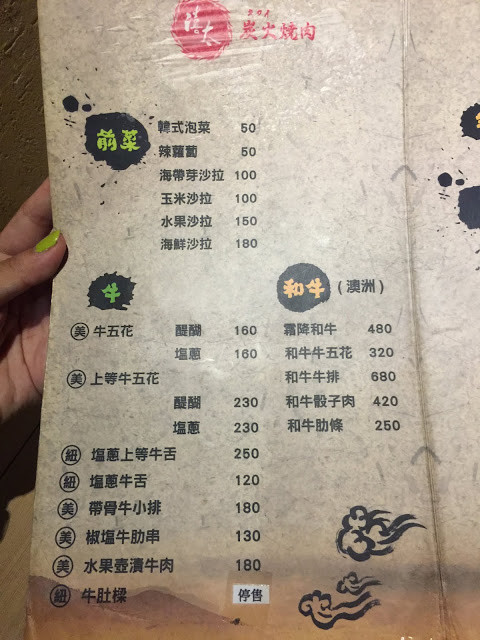 炭火燒肉
前菜
韓式泡菜 50
辣蘿蔔 50
海帶芽沙拉 100
玉米沙拉 100
水果沙拉 150
海鮮沙拉 180
牛
美 牛五花 醍醐 160
塩蔥 160
美 上等牛五花
醍醐 230
塩蔥 230
紐 塩蔥上等牛舌 250
紐 塩蔥牛舌 120
美 帶骨牛小排 180
美 椒塩牛肋串 130
美 水果壺漬牛肉 180
紐 牛肚樑 停售
和牛 (澳洲)
霜降和牛 480
和牛牛五花 320
和牛牛排 680
和牛骰子肉 420
和牛肋條 250